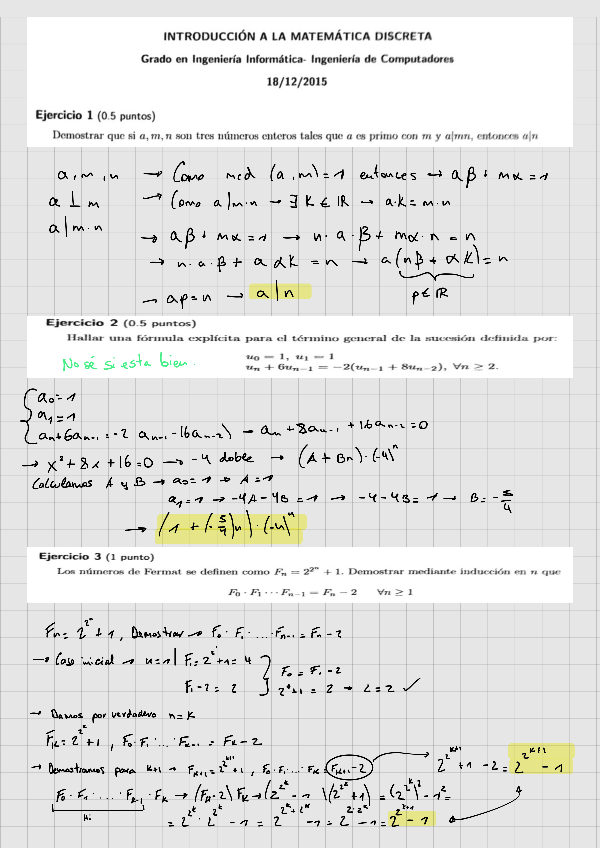 INTRODUCCIÓN A LA MATEMÁTICA DISCRETA
Grado en Ingeniería Informática- Ingeniería de Computadores
18/12/2015
Ejercicio 1 (0.5 puntos)
Demostrar que si a, m, n son tres números enteros tales que a es primo con m y a|mn, entonces a|n
a, m, n → Como mcd (a,m)=1 entonces → aβ + mα = 1
a ⊥ m → Como a|m·n → ∃ K ∈ ℝ → a·k = m·n
a | m·n
→ aβ + mα = 1 → n·a·β + mα·n = n
→ n·a·β + aαk = n → a(nβ + αk) = n
→ ap = n → a|n p ∈ ℝ
Ejercicio 2 (0.5 puntos)
Hallar una fórmula explícita para el término general de la sucesión definida por:
No sé si esta bien.
u₀ = 1, u₁ = 1
uₙ + 6uₙ₋₁ = −2(uₙ₋₁ + 8uₙ₋₂), ∀n ≥ 2.
a₀ = 1
a₁ = 1
aₙ + 6aₙ₋₁ = -2 aₙ₋₁ - 16aₙ₋₂) → aₙ + 8aₙ₋₁ + 16aₙ₋₂ = 0
→ x² + 8x + 16 = 0 → -4 doble → (A + Bn)·(-4)ⁿ
Calculamos A y B → a₀ = 1 → A = 1
a₁ = 1 → -4A - 4B = 1 → -4 - 4B = 1 → B = -5/4
→ (1 + (-5/4)n)·(-4)ⁿ
Ejercicio 3 (1 punto)
Los números de Fermat se definen como Fₙ = 2^2^n + 1. Demostrar mediante inducción en n que
F₀ · F₁ · · · Fₙ₋₁ = Fₙ − 2 ∀n ≥ 1
Fₙ = 2^2^n + 1, Demostrar → F₀ · F₁ · ... · Fₙ₋₁ = Fₙ - 2
→ Caso inicial → n=1 | F₁ = 2^2^1 + 1 = 4 F₀ = F₁ - 2
F₁ - 2 = 2 2^2^0 + 1 = 2 → 2 = 2 ✓
→ Damos por verdadero n = K
F_K = 2^2^K + 1, F₀ · F₁ · ... · F_K-1 = F_K - 2
→ Demostramos para K+1 → F_K+1 = 2^2^K+1 + 1, F₀ · F₁ · ... · F_K = F_K+1 - 2 2^2^K+1 + 1 - 2 = 2^2^K+1 - 1
F₀ · F₁ · ... · F_K-1 · F_K → (F_K - 2) F_K → (2^2^K - 1)(2^2^K + 1) = (2^2^K)² - 1² =
Hi
= 2^2^K · 2^2^K - 1 = 2^2^K + 2^K - 1 = 2^2·2^K - 1 = 2^2^K+1 - 1